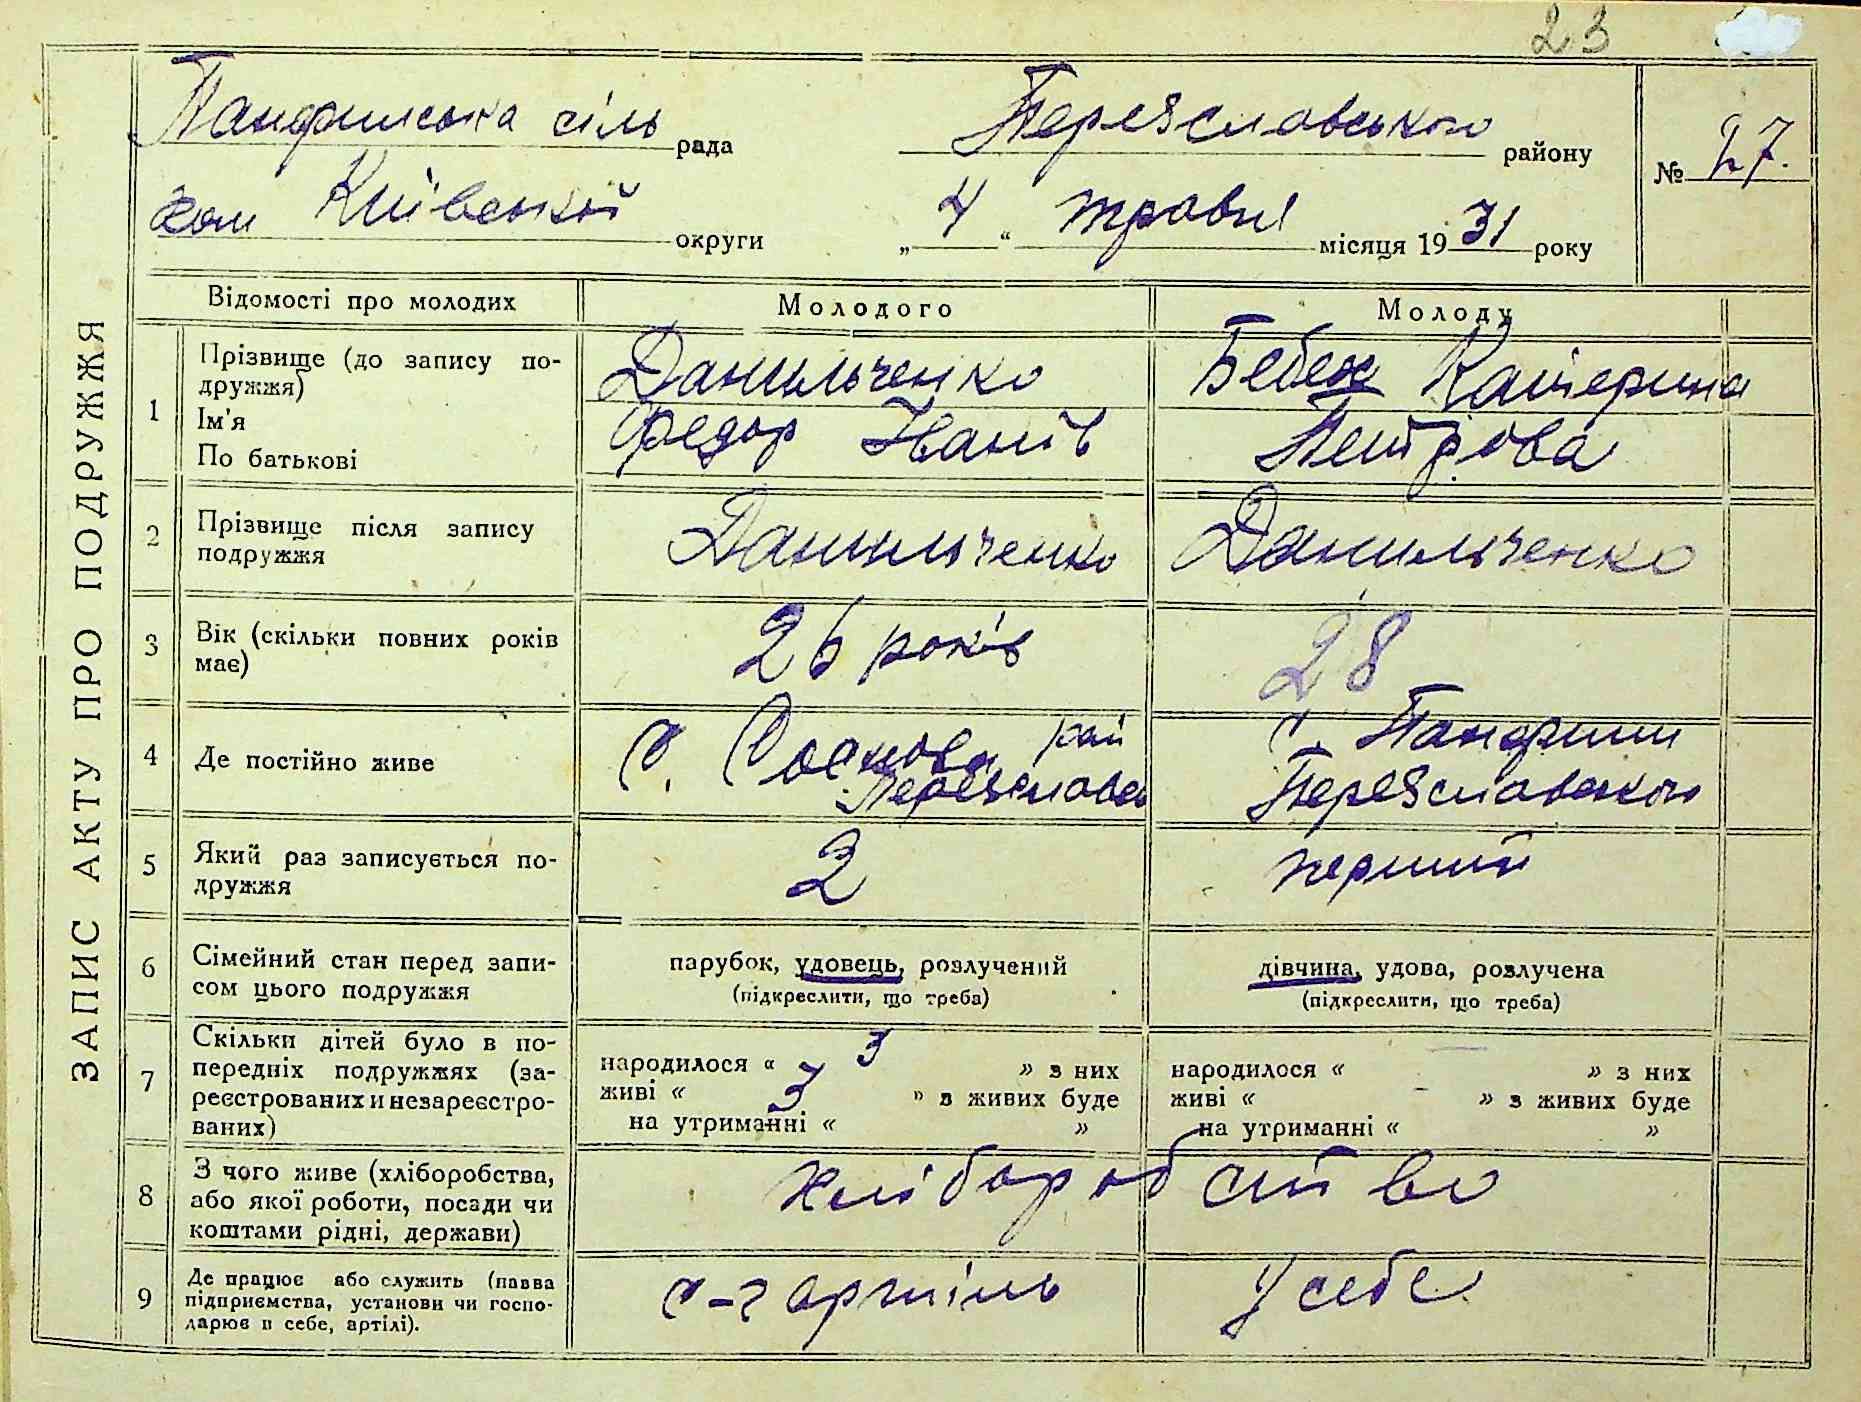 23
Панфильська сіль рада Переяславського району № 27.
кол Київської округи „ 4 “ травня місяця 1931 року
ЗАПИС АКТУ ПРО ПОДРУЖЖЯ
Відомості про молодих Молодого Молоду
1 Прізвище (до запису по-
дружжя)
Ім'я
По батькові
Данильченко
Федор Іванів
Бебех Катерина
Петрова
2 Прізвище після запису
подружжя
Данильченко Данильченко
3 Вік (скільки повних років
має)
26 років 28
4 Де постійно живе
с. Соснова рай
Переяславсь
с. Панфили
Переяславського
5 Який раз записується по-
дружжя
2 перший
6 Сімейний стан перед запи-
сом цього подружжя
парубок, удовець, розлучений
(підкреслити, що треба)
дівчина, удова, розлучена
(підкреслити, що треба)
7 Скільки дітей було в по-
передніх подружжях (за-
реєстрованих и незареєстро-
ваних)
народилося « 3 » з них
живі « 3 » з живих буде
на утриманні « »
народилося « — » з них
живі « - » з живих буде
на утриманні « »
8 З чого живе (хліборобства,
або якої роботи, посади чи
коштами рідні, держави)
хліборобство
9 Де працює або служить (навва
підприємства, установи чи госпо-
дарює п себе, артілі).
с-г артіль У себе